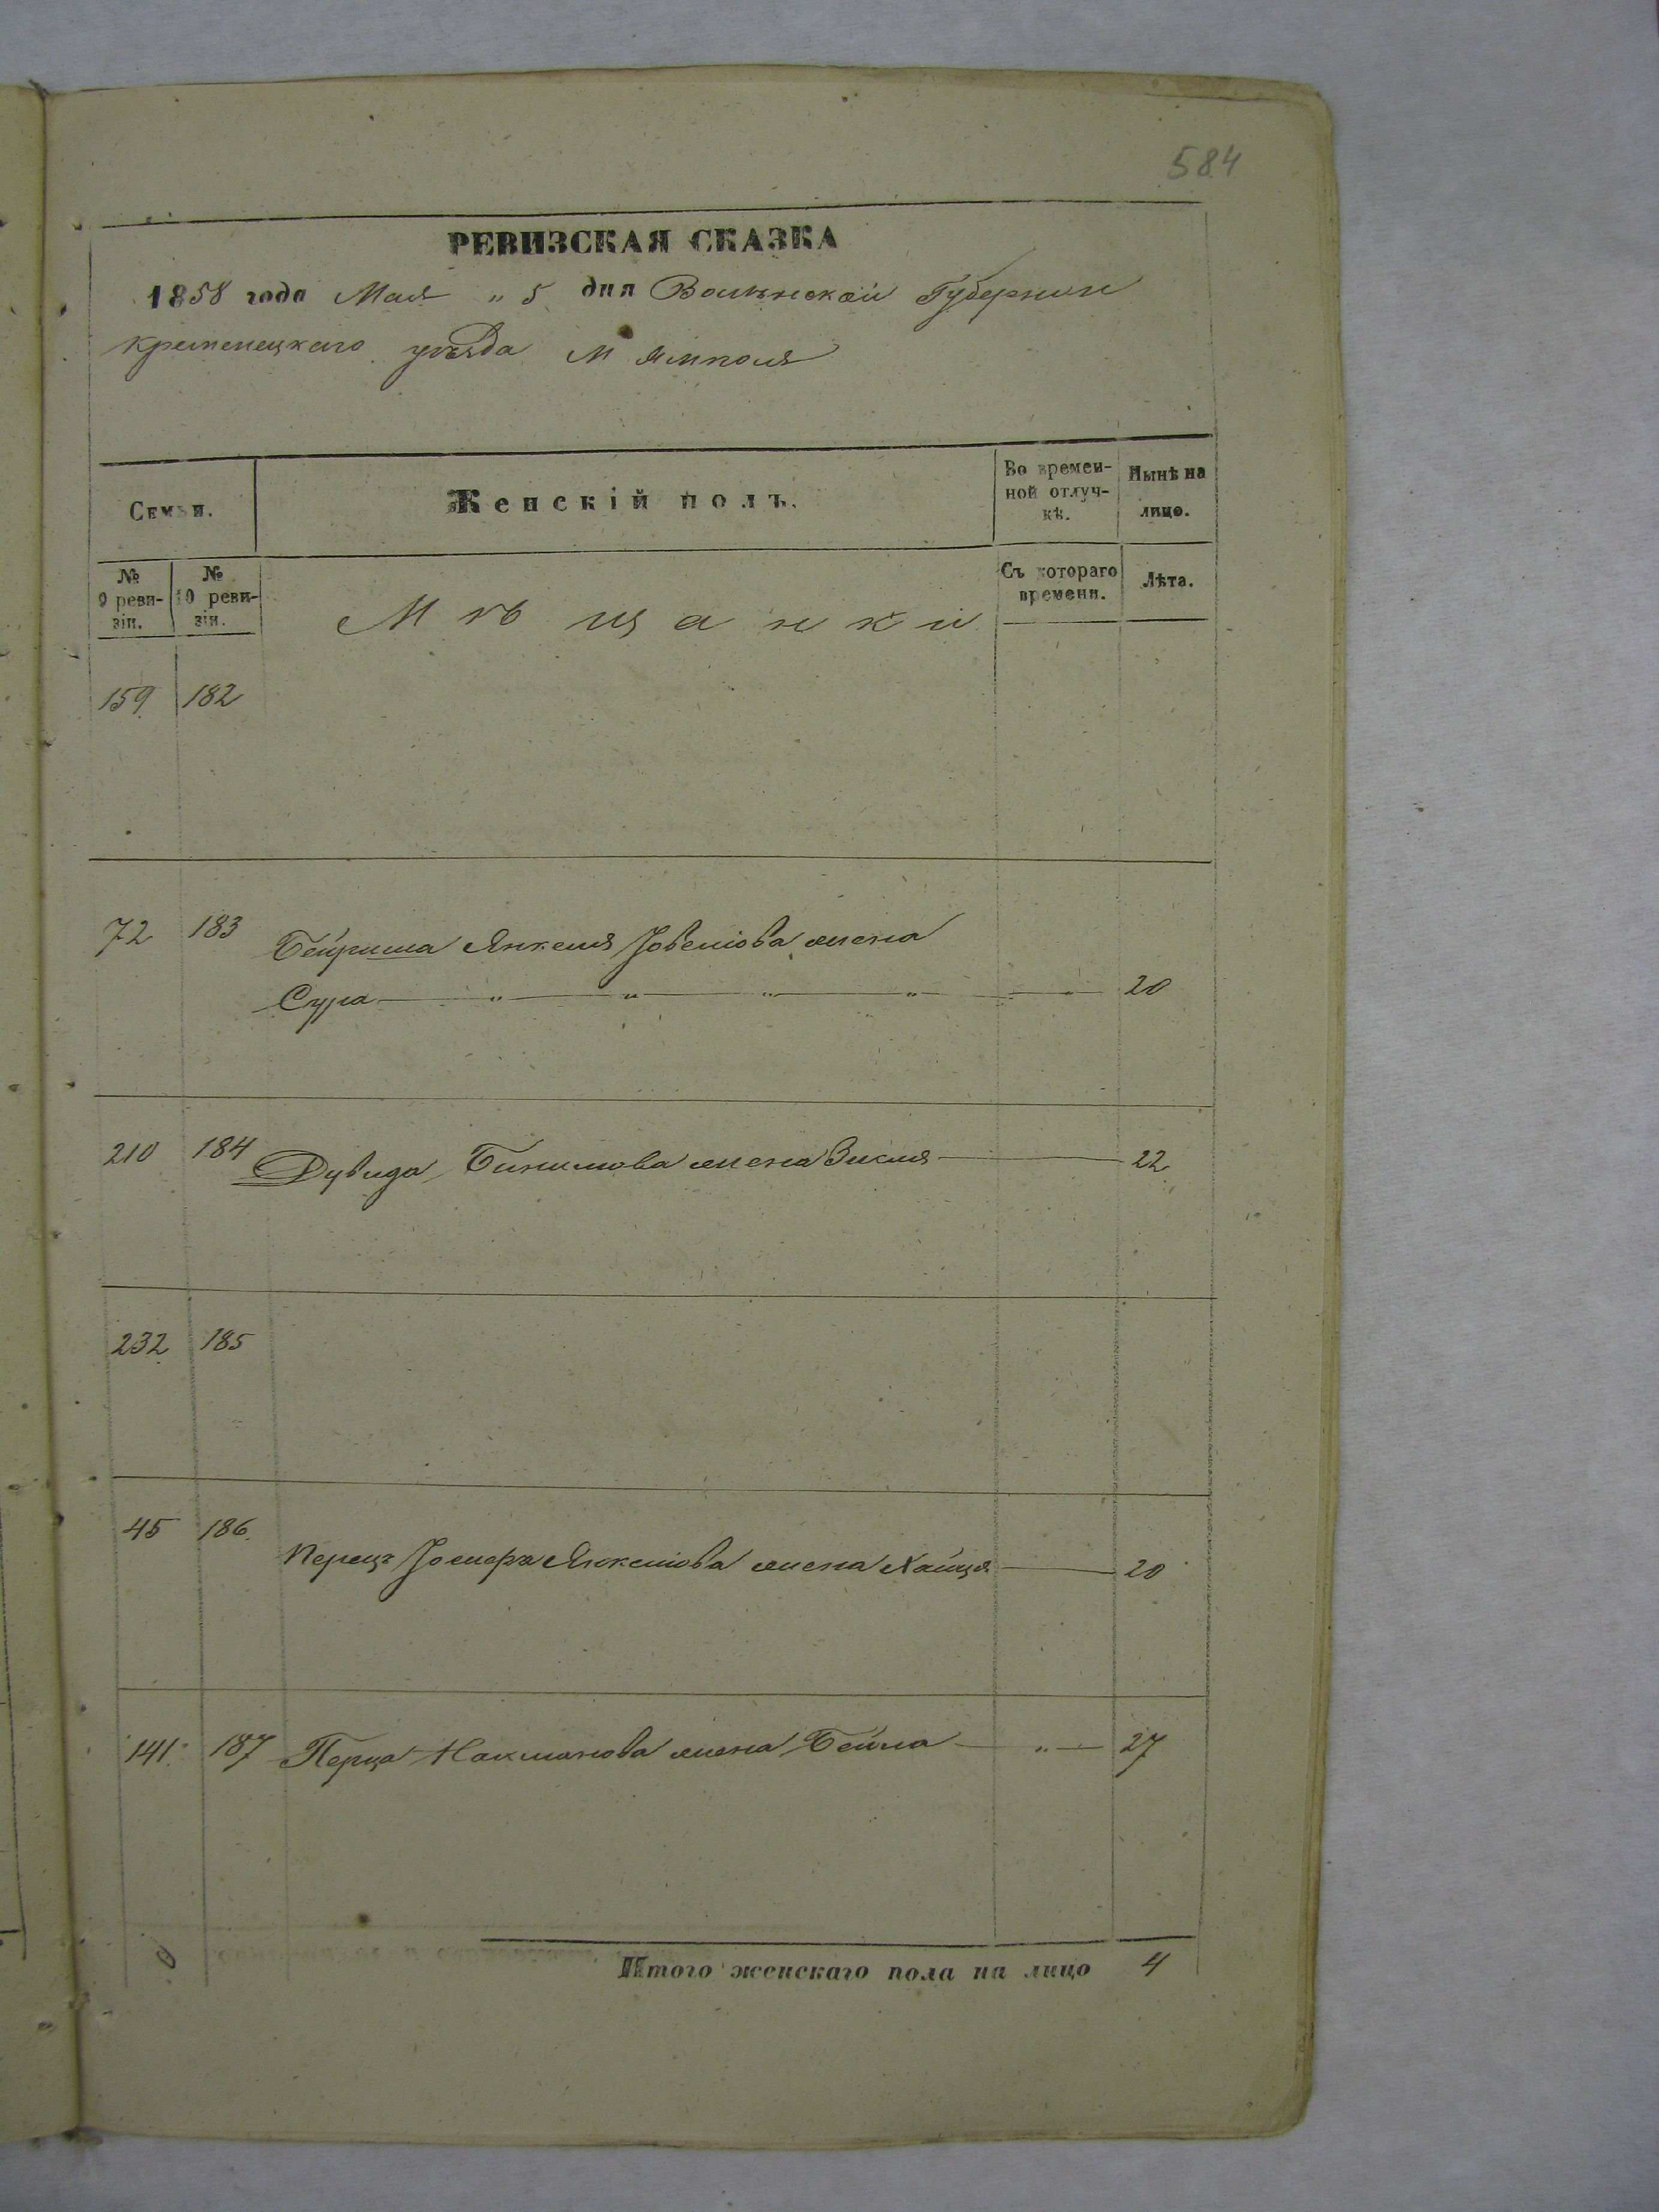 584
РЕВИЗСКАЯ СКАЗКА
1858 года Мая „ 5 дня Волынской Губернии
Кременецкаго уѣзда М Ямполя
Семьи. Женскій полъ. Во времен-ной отлуч-кѣ. Нынѣ на лицо.
№ 9 реви-зіи. № 10 реви-зіи. Мѣщанки Съ котораго времени. Лѣта.
159 182
72 183 Янкеля Іовеліова жена
Сура „ „ „ „ „ 20
210 184 Дувида жена 22
232 185
45 186 Перецъ Іосифа Янкеліова жена Хайця 20
141 187 Перца Нахманова жена Бейла „ 27
Итого женскаго пола на лицо 4